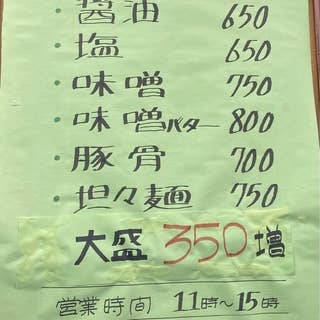 ・醤油 650
・塩 650
・味噌 750
・味噌バター 800
・豚骨 700
・坦々麺 750
大盛 350増
営業時間 11時～15時